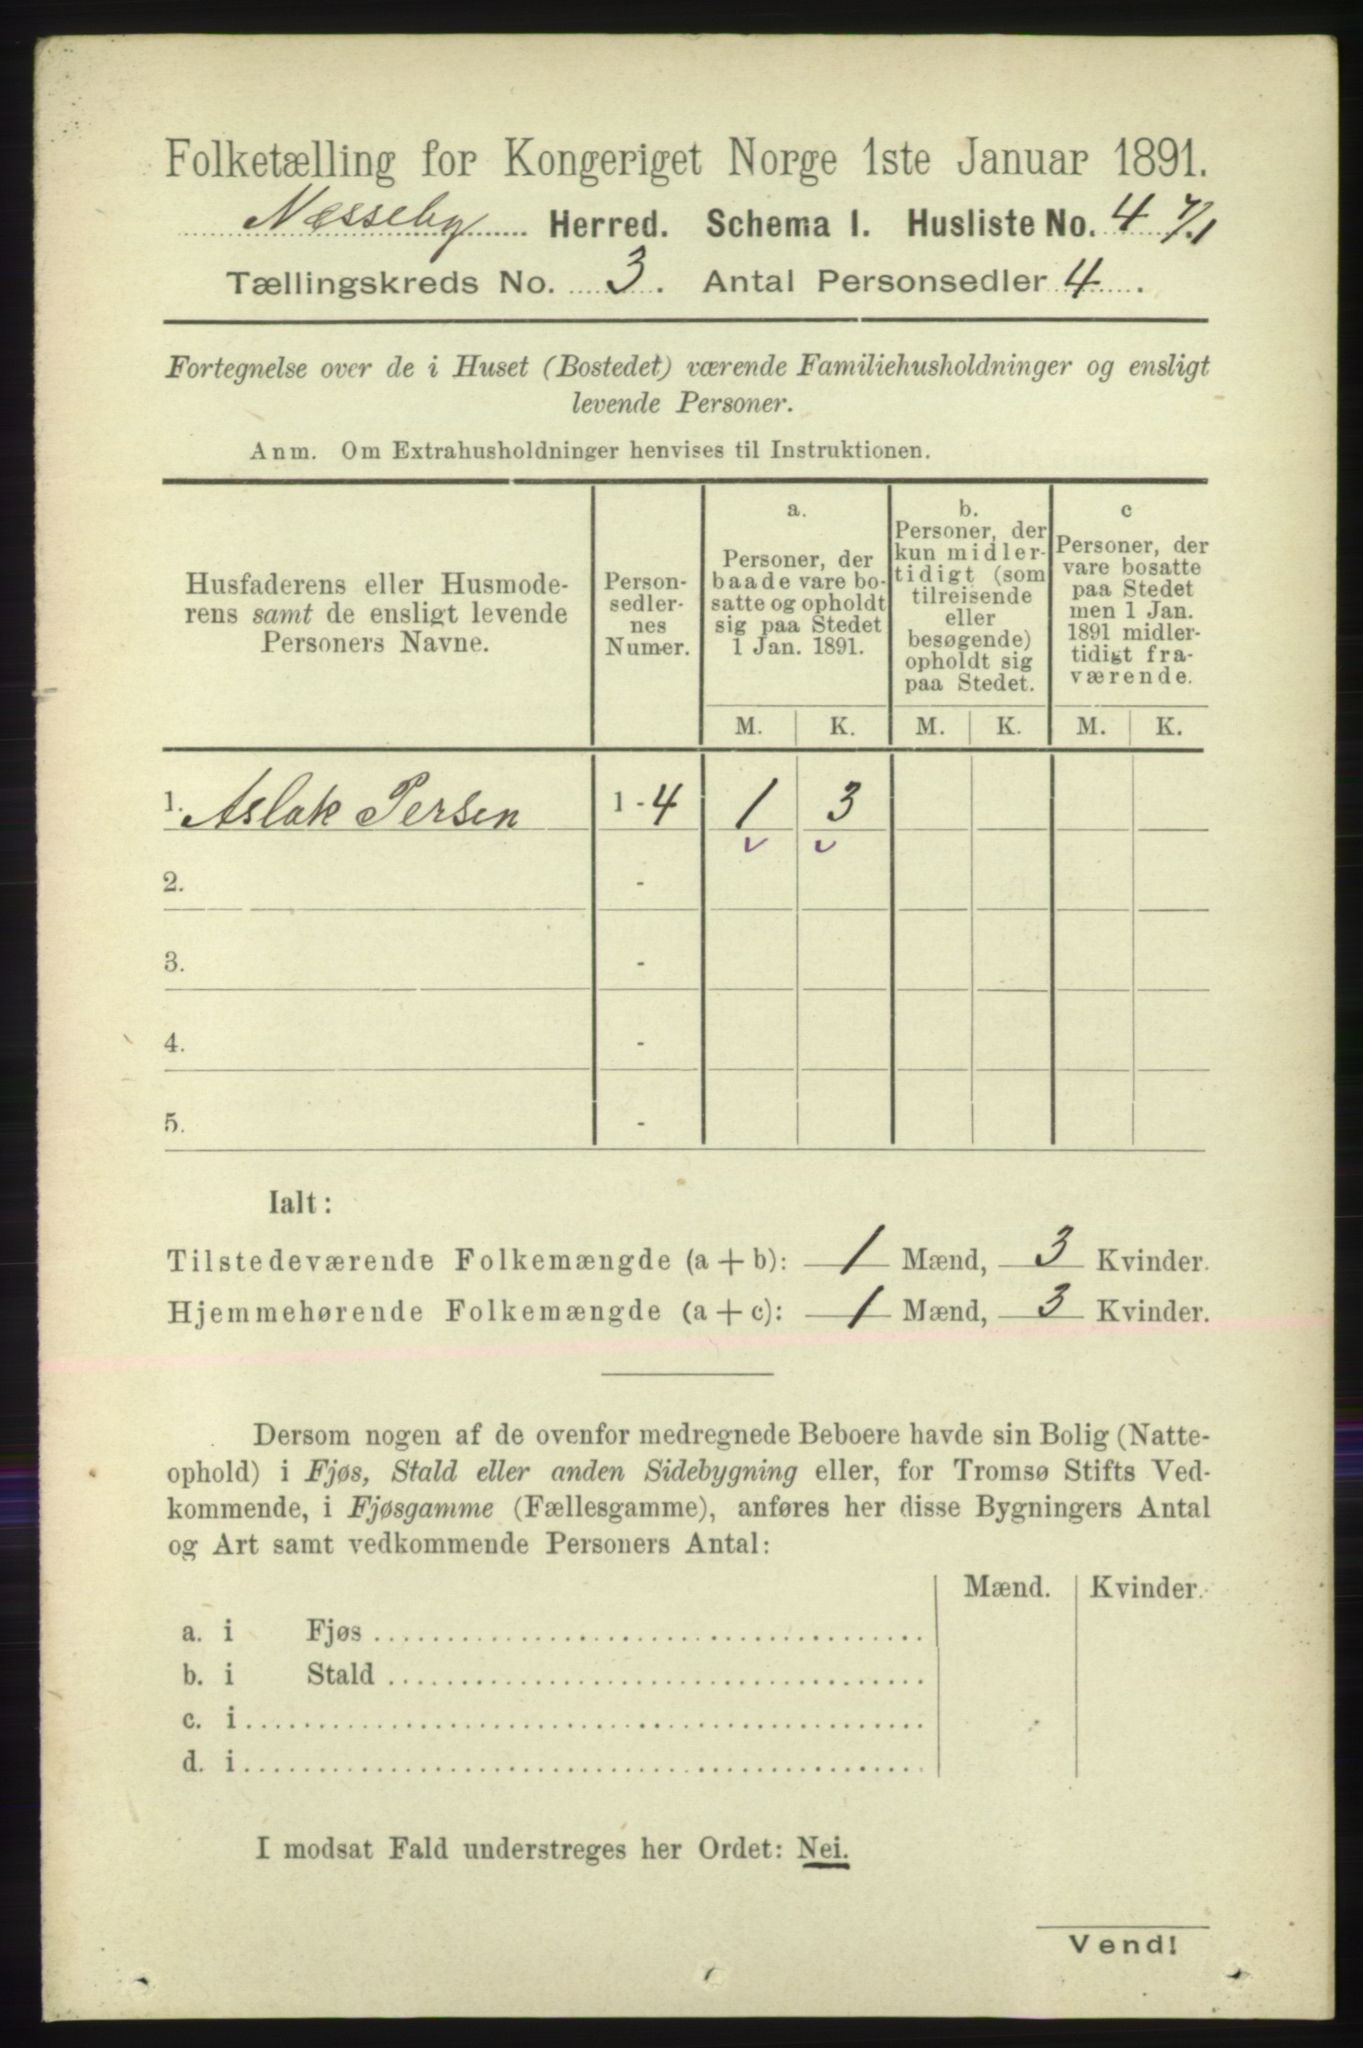 Folketælling for Kongeriget Norge 1ste Januar 1891.
Næsseby Herred. Schema I. Husliste No. 4
Tællingskreds No. 3. Antal Personsedler 4.
Fortegnelse over de i Huset (Bostedet) værende Familiehusholdninger og ensligt
levende Personer.
Anm. Om Extrahusholdninger henvises til Instruktionen.
Husfaderens eller Husmode-
rens samt de ensligt levende
Personers Navne.
Person-
sedler-
nes
Numer.
a.
Personer, der
baade vare bo-
satte og opholdt
sig paa Stedet
1 Jan. 1891.
b.
Personer, der
kun midler-
tidigt (som
tilreisende
eller
besøgende)
opholdt sig
paa Stedet.
c
Personer, der
vare bosatte
paa Stedet
men 1 Jan.
1891 midler-
tidigt fra-
værende.
M. K. M. K. M. K.
1. Aslak Persen 1-4 1 3
2. -
3. -
4. -
5. -
Ialt:
Tilstedeværende Folkemængde (a+b): 1 Mænd, 3 Kvinder.
Hjemmehørende Folkemængde (a+c): 1 Mænd, 3 Kvinder.
Dersom nogen af de ovenfor medregnede Beboere havde sin Bolig (Natte-
ophold) i Fjøs, Stald eller anden Sidebygning eller, for Tromsø Stifts Ved-
kommende, i Fjøsgamme (Fællesgamme), anføres her disse Bygningers Antal
og Art samt vedkommende Personers Antal:
Mænd. Kvinder.
a. i Fjøs
b. i Stald
c. i
d. i
I modsat Fald understreges her Ordet: Nei.
Vend!